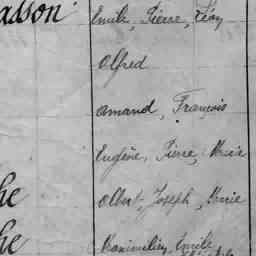 asson Emile, Pierre, Léon
Alfred
Amand, François
Eugène, Pierre, Marie
he Albert, Joseph, Marie
he Maximilien, Emile